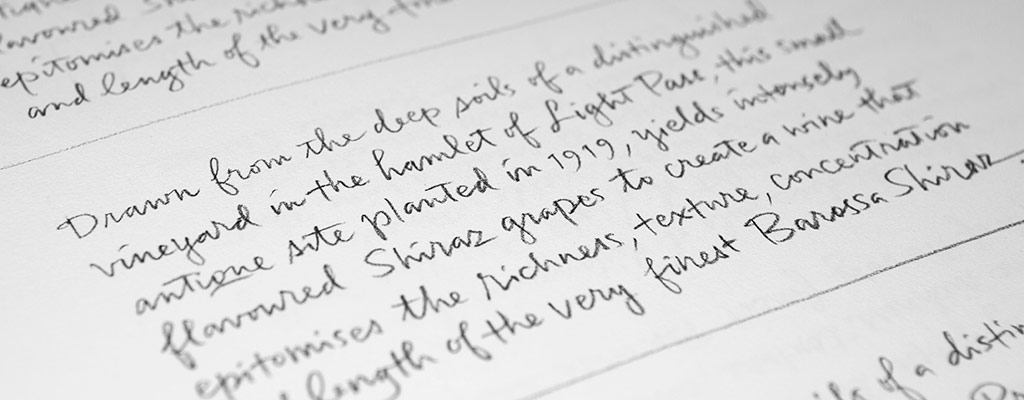 flavoured
epitomises the rich
and length of the very fine
Drawn from the deep soils of a distinguished
vineyard in the hamlet of Light Pass, this small
antique site planted in 1919, yields intensely
flavoured Shiraz grapes to create a wine that
epitomises the richness, texture, concentration
length of the very finest Barossa Shiraz
of a distin